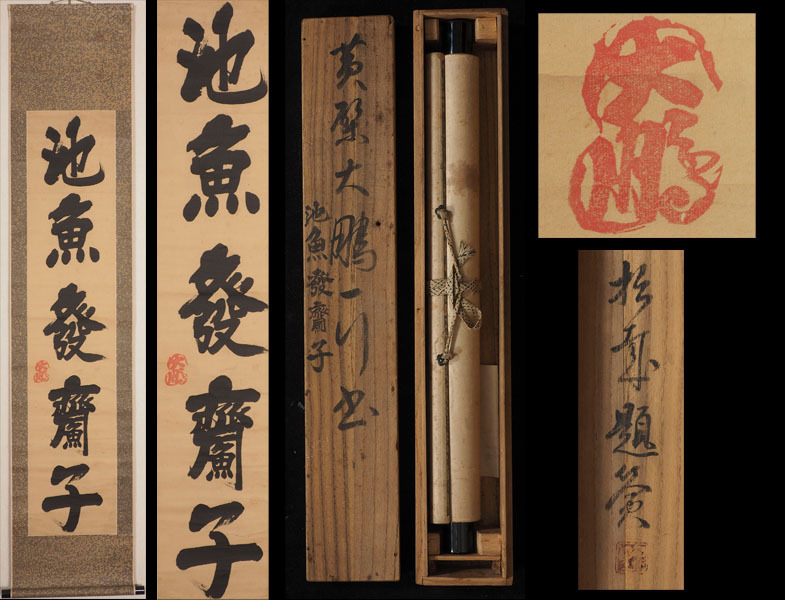 池魚發齋子
池魚發齋子
黄檗大鵬一行書
池魚發齋子
大鵬
題簽